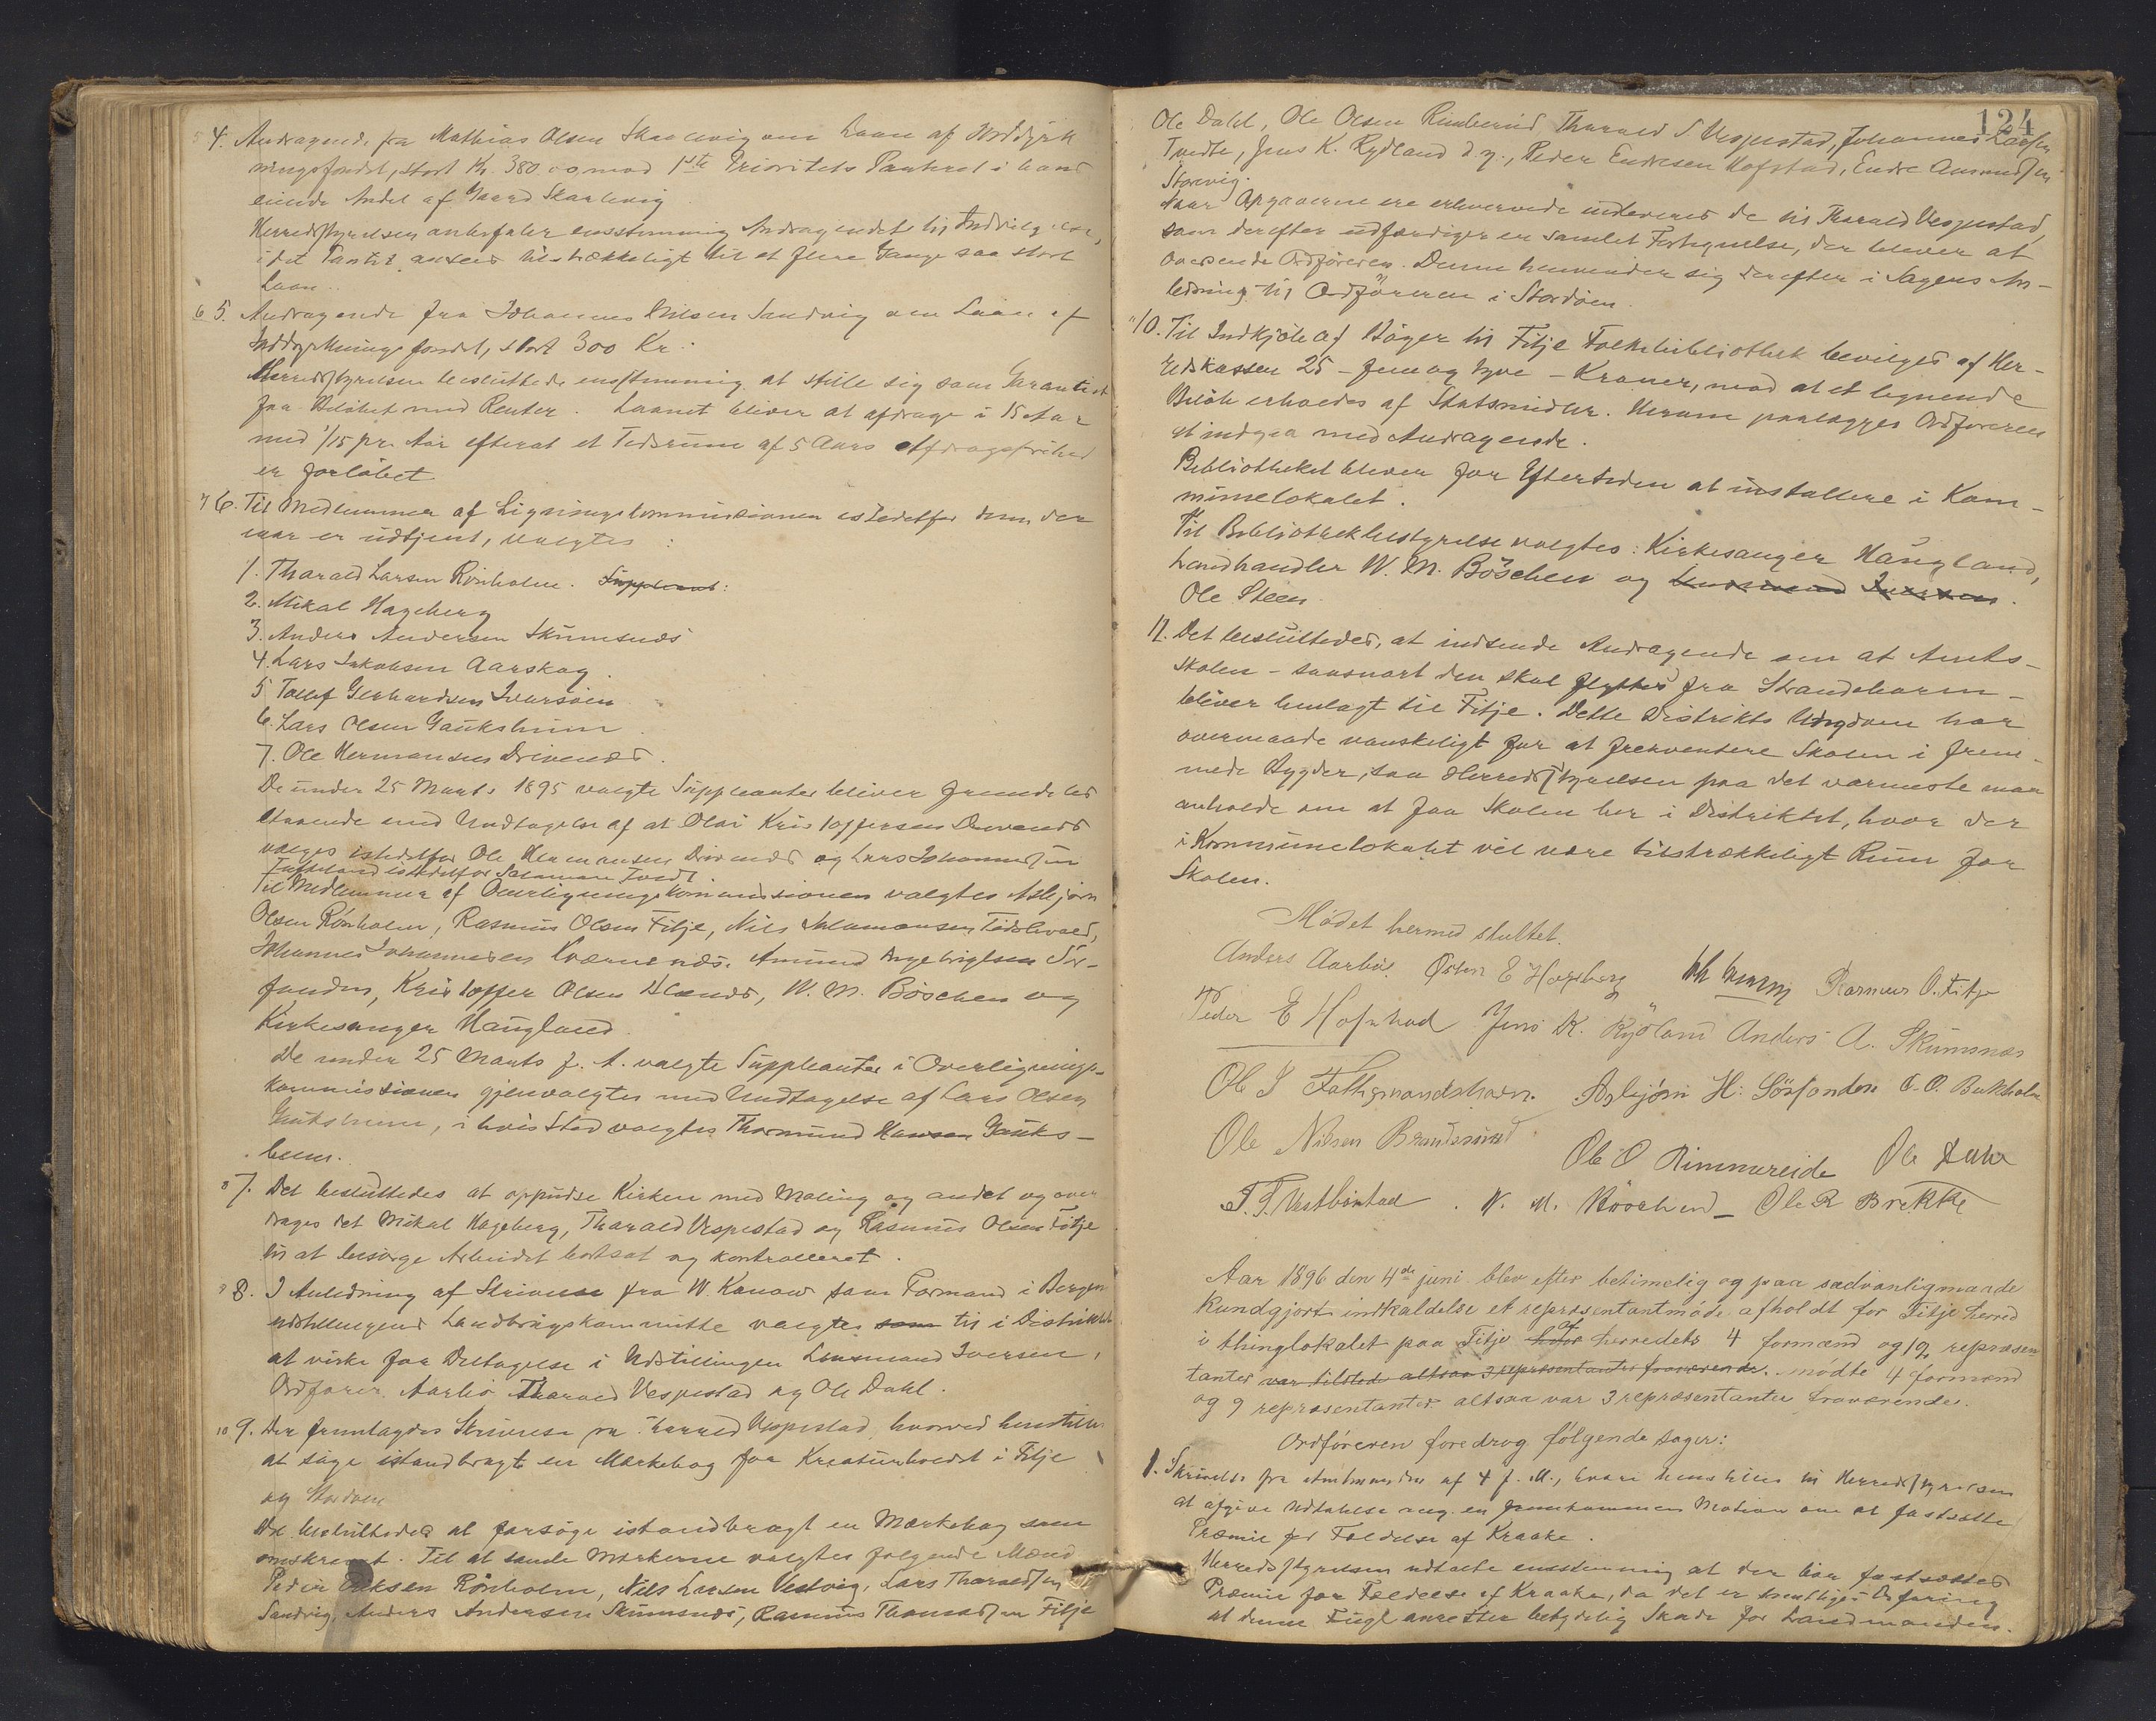 5 4. Andragende fra Mathias Olsen Skaalevig om Laan af Inddyrk
ningsfondet, stort Kr. 380 00 mod 1ste Prioritets Panteret i hans
eiende Andel af Gaard Skaalevig
Herredstyrelsen anbefaler eensstemmig Andragendet til Indvilgelse,
idet Pantet ansees tilstrækkeligt til et flere Gange saa stort
Laan.
6 5. Andragende fra Johannes Nilsen Sandvig om Laan af
Inddyrkningsfondet, stort 300 Kr.
Herredstyrelsen besluttede eensstemmig at stille sig som Garantist
for Beløbet med Renter. Laanet bliver at afdrage i 15 Aar
med 1/15 pr. Aar efterat et Tidsrum af 5 Aars Afdragsfrihed
er forløbet
7 6. Til Medlemmer af Ligningskommissionen istedetfor dem der
iaar er udtjent, valgtes:
1. Tharald Larsen Rimholm. Suppleant:
2. Mikal Hageberg
3. Anders Andersen Skumsnæs
4. Lars Jakobsen Aarskog
5 Tollef Gerhardsen Iversøen
6. Lars Olsen Gauksheim
7. Ole Hermansen Drivenæs.
De under 25 Marts 1895 valgte Suppleanter bliver fremdeles
staaende med Undtagelse af at Olai Kristoffersen Drivenæs
vælges istedetfor Ole Hermansen Drivenæs og Lars Johannessen
Tufteland istedetfor Salamon Tvedt
Til Medlemmer af Overligningskommissionen valgtes Asbjørn
Olsen Rønholm, Rasmus Olsen Fitje, Nils Salamonsen Tislevold,
Johannes Johannesen Kværnenæs. Amund Ingebrigtsen Sør-
fonden, Kristoffer Olsen Ølænds, W. M. Böschen og
Kirkesanger Haugland.
De under 25 Marts f. A. valgte Suppleanter i Overlignings-
kommissionen gjenvalgtes med Undtagelse af Lars Olsen
Gaukshеim, i hvis Sted valgtes Thormund Hansen Gauks-
heim.
8 7. Det besluttedes at oppudse Kirken med Maling og andet og over
drages det Mikal Hageberg, Tharald Vespestad og Rasmus Olsen Fitje
til at besørge Arbeidet bortsat og kontrolleret.
9 8. I Anledning af Skrivelse fra W. Konow som Formand i Bergen
udstillingens Landbrugskommitte valgtes som til i Distriktet
at virke for Deltagelse i Udstillingen Lensmand Iversen,
Ordfører Aarbø Tharald Vespestad og Ole Dahl.
10 9. Der fremlagdes Skrivelse fra Tharald Vespestad, hvorved henstilles
at søge istandbragt en Mærkebog for Kreaturholdet i Fitje
og Stordøen
Det besluttedes at forsøge istandbragt en Mærkebog som
omskrevet. Til at samle Mærkerne valgtes følgende Mænd
Peder Eriksen Rønholm, Nils Larsen Vestvig, Lars Tharaldsen
Sandvig, Anders Andersen Skumsnæs, Rasmus Thomassen Fitje
124
Ole Dahl, Ole Olsen Rimbereid, Tharald S. Vespestad, Johannes Larsen
Tvedte, Jens K. Rydland d. y., Peder Endresen Hofstad, Endre Amundsen
Storevig.
Naar Opgaverne ere erhvervede indleveres de til Tharald Vespestad,
som derefter udfærdiger en samlet Fortegnelse, der bliver at
oversende Ordføreren. Denne henvender sig derefter i Sagens An-
ledning til Ordføreren i Stordøen.
10. Til Indkjøb af Bøger til Fitje Folkebibliothek bevilges af Her-
redskassen 25 - fem og tyve - Kroner, mod at et lignende
Beløb erholdes af Statsmidler. Herom paalægges Ordføreren
at indgaa med Andragende.
Bibliotheket bliver for Eftertiden at installere i Kom-
munelokalet.
Til Bibliothekbestyrelse valgtes: Kirkesanger Haugland,
Landhandler W. M. Böschen og Lensmand Iversen.
Ole Steen.
11. Det besluttedes, at indsende Andragende om at Amts-
skolen - saasnart den skal flyttes fra Strandebarm -
bliver henlagt til Fitje. Dette Distrikts Ungdom har
overmaade vanskeligt for at frekventere Skolen i frem-
mede Bygder, saa Herredstyrelsen paa det varmeste maa
anholde om at faa Skolen her i Distriktet, hvor der
i Kommunelokalet vil være tilstrækkeligt Rum for
Skolen.
Mødet hermed sluttet.
Anders Aarbø. Østen E Hageberg Rasmus O. Fitje
Peder E Hofstad Jens K. Rydland Anders A. Skumsnæs
Ole J Folkgmandshavn. Asbjørn H: Sørfonden O. O. Bukholm
Ole Nilsen Brandesund Ole O Rimmereide Ole Dahl
T. T. Vestbøstad. W. M. Böschen – Ole R Brekke
Aar 1896 den 4de juni blev efter betimelig og paa sædvanligmaade
kundgjort indkaldelse et repræsentantmøde afholdt for Fitje herred
i thinglokalet paa Fitje hvor af herredets 4 formænd og 12 repræsen
tanter var tilstede altsaa 3 repræsentanter fraværende. mødte 4 formænd
og 9 repræsentanter altsaa var 3 repræsentanter fraværende.
Ordføreren foredrog følgende sager:
1. Skrivelse fra Amtmanden af 4 f. M., hvori henstilles til Herredstyrelsen
at afgive Udtalelse ang. en fremkommen Motion om at fastsætte
Præmie for Fældelse af Kraake.
Herredstyrelsen udtalte eensstemmig at der bør fastsættes
Præmie for Fældelse af Kraake, da det er kjendtligt Erfaring
at denne Fugl anretter betydelig Skade for Landmanden.